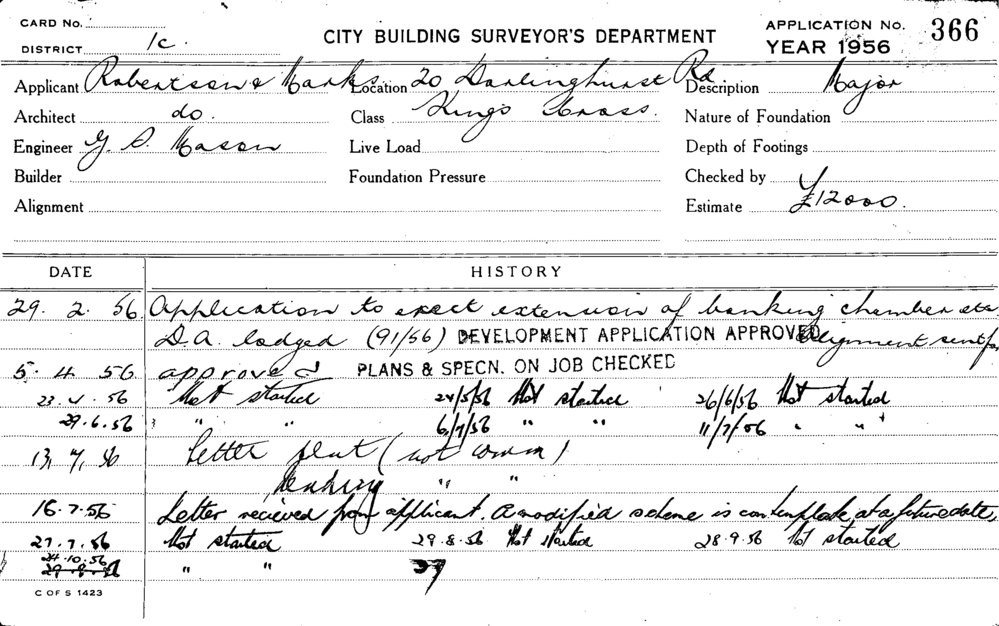 CARD No.
DISTRICT 1c.
CITY BUILDING SURVEYOR'S DEPARTMENT
APPLICATION No. 366
YEAR 1956
Applicant Robertson & Marks Location 20 Darlinghurst Rd Description Major
Architect do. Class Kings Cross. Nature of Foundation
Engineer G. S. Mason Live Load Depth of Footings
Builder Foundation Pressure Checked by
Alignment Estimate £12000.
DATE HISTORY
29. 2. 56 Application to erect extension of banking chamber etc.
D.A. lodged (91/56) DEVELOPMENT APPLICATION APPROVED Alignment sent for
5. 4. 56 approved PLANS & SPECN. ON JOB CHECKED
23.4.56 Not started 24/5/56 Not started 26/6/56 Not started
29.6.56 " " 6/7/56 " " 11/7/56 " "
13. 7. 56 Letter sent (not comm)
" "
16.7.56 Letter recieved from applicant. A modified scheme is contemplate at a future date.
27.7.56 Not started 29.8.56 Not started 28.9.56 Not started
24.10.56
" "
C OF S 1423